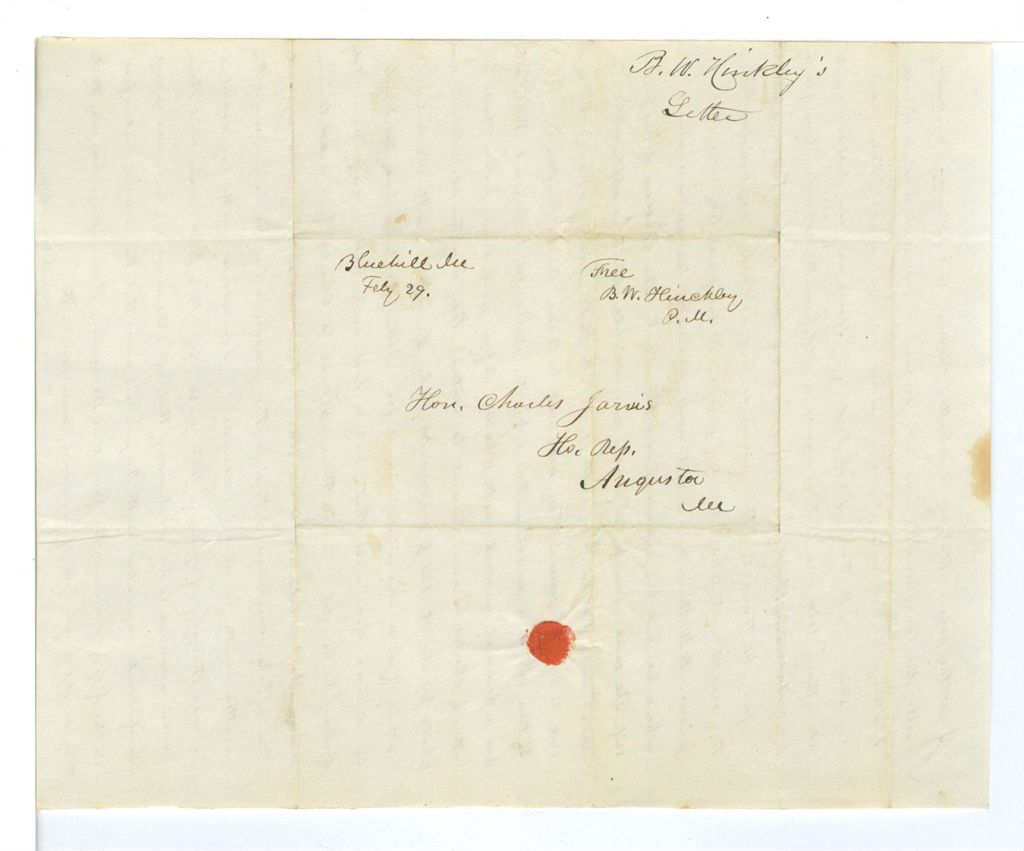 B. W. Hinkley's
Letter
Bluehill Me
Feby 29.
Free
B. W. Hinckley
P. M.
Hon. Charles Jarvis
Ho. Rep.
Augusta
Me